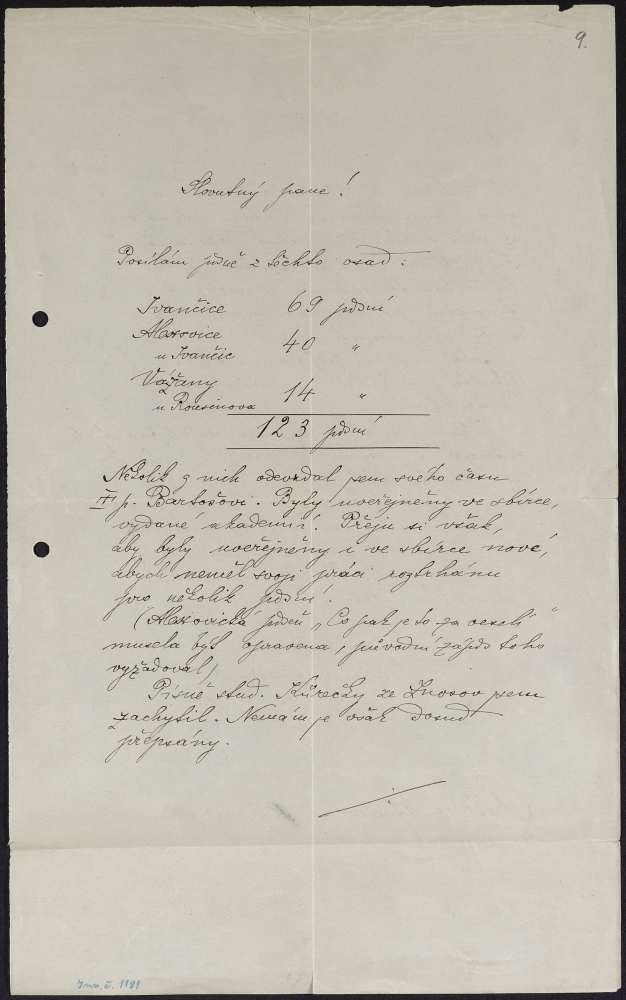 9.
Slovutný pane!
Posílám písně z těchto osad:
Ivančice 69 písní
Alexovice
u Ivančic 40 "
Vážany
u Rousínova 14 "
123 písní
Několik z nich odevzdal jsem svého času
† p. Bartošovi. Byly uveřejněny ve sbírce,
vydané akademií. Přeju si však,
aby byly uveřejněny i ve sbírce nové,
abych neměl svoji práci roztrhánu
pro několik písní.
(Alexovická píseň „Co pak je to za veselí"
musela být opravena, původní zájds toho
vyžadoval)
Písně stud. Kůrečky ze jsem
zachytil. Nemám je však dosud
přepsány.
Inv. č. 1181